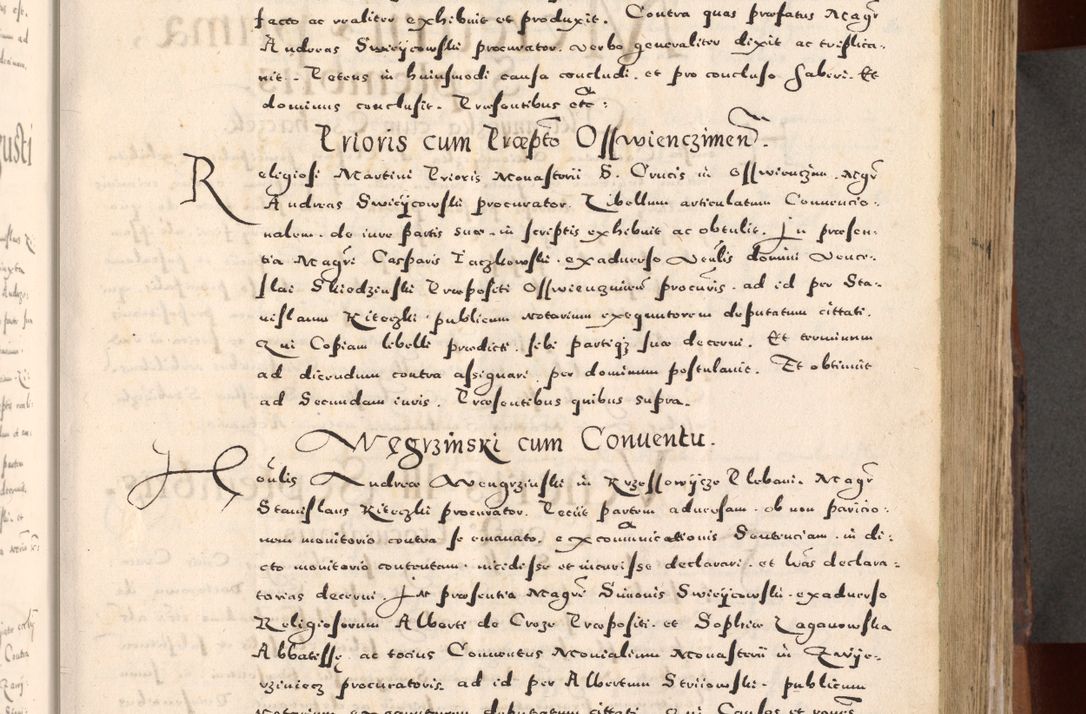 facto ac realiter exhibuit et produxit. Contra quas præfatus Magr
Andreas Swieÿcowski procurator. verbo generaliter dixit ac triplica-
uit. Petens in huiusmodi causa concludi. et pro concluso haberi. Et
dominus conclusit. Præsentibus etc:
Prioris cum Præpto Osswienczimen.
Religiosi Martini Prioris Monasterii S. Crucis in Osswienczim. Mgr
Andreas Swieÿcowski procurator. Libellum articulatum Conuencio-
nalem. de iure partis suæ. in scriptis exhibuit ac obtulit. In præsen-
tia Magri Casparis Taczkowski. exaduerso Venlis domini Vence-
slai Skiedzinski Præpositi Osswienczimen procuris. ad id per Sta-
nislaum Kiteczki publicum Notarium exequutorem deputatum cittati.
Qui Copiam libelli prædicti. sibi partiqz suæ decerni. Et terminum
ad dicendum contra assignari. per dominum postulauit. Et obtinuit
ad Secundam iuris. Præsentibus quibus supra.
Węgrzinski cum Conuentu.
Honlis Andreæ Wengrzinski in Krzessowÿcze Plebani. Magr
Stanislaus Kiteczki procurator. Reciit partem aduersam. ob non paricio-
nem monitorio contra se emanato. excommunicationis Sententiam. in di-
cto monitorio contentam. incidisse et incurisse declarari. et lras declara-
torias decerni. In præsentia Magri Simonis Swieÿcowski. exaduerso
Religiosorum Alberti de Croze Præpositi. et Sophiæ Zaganowska
Abbatissę. ac tocius Conuentus Monialium Monasterii in Zwÿe-
rziniecz procuratoris. ad id per Albertum Striiowski. publicum
Notarium exequutorem deputatum cittati. Qui Causas et rones